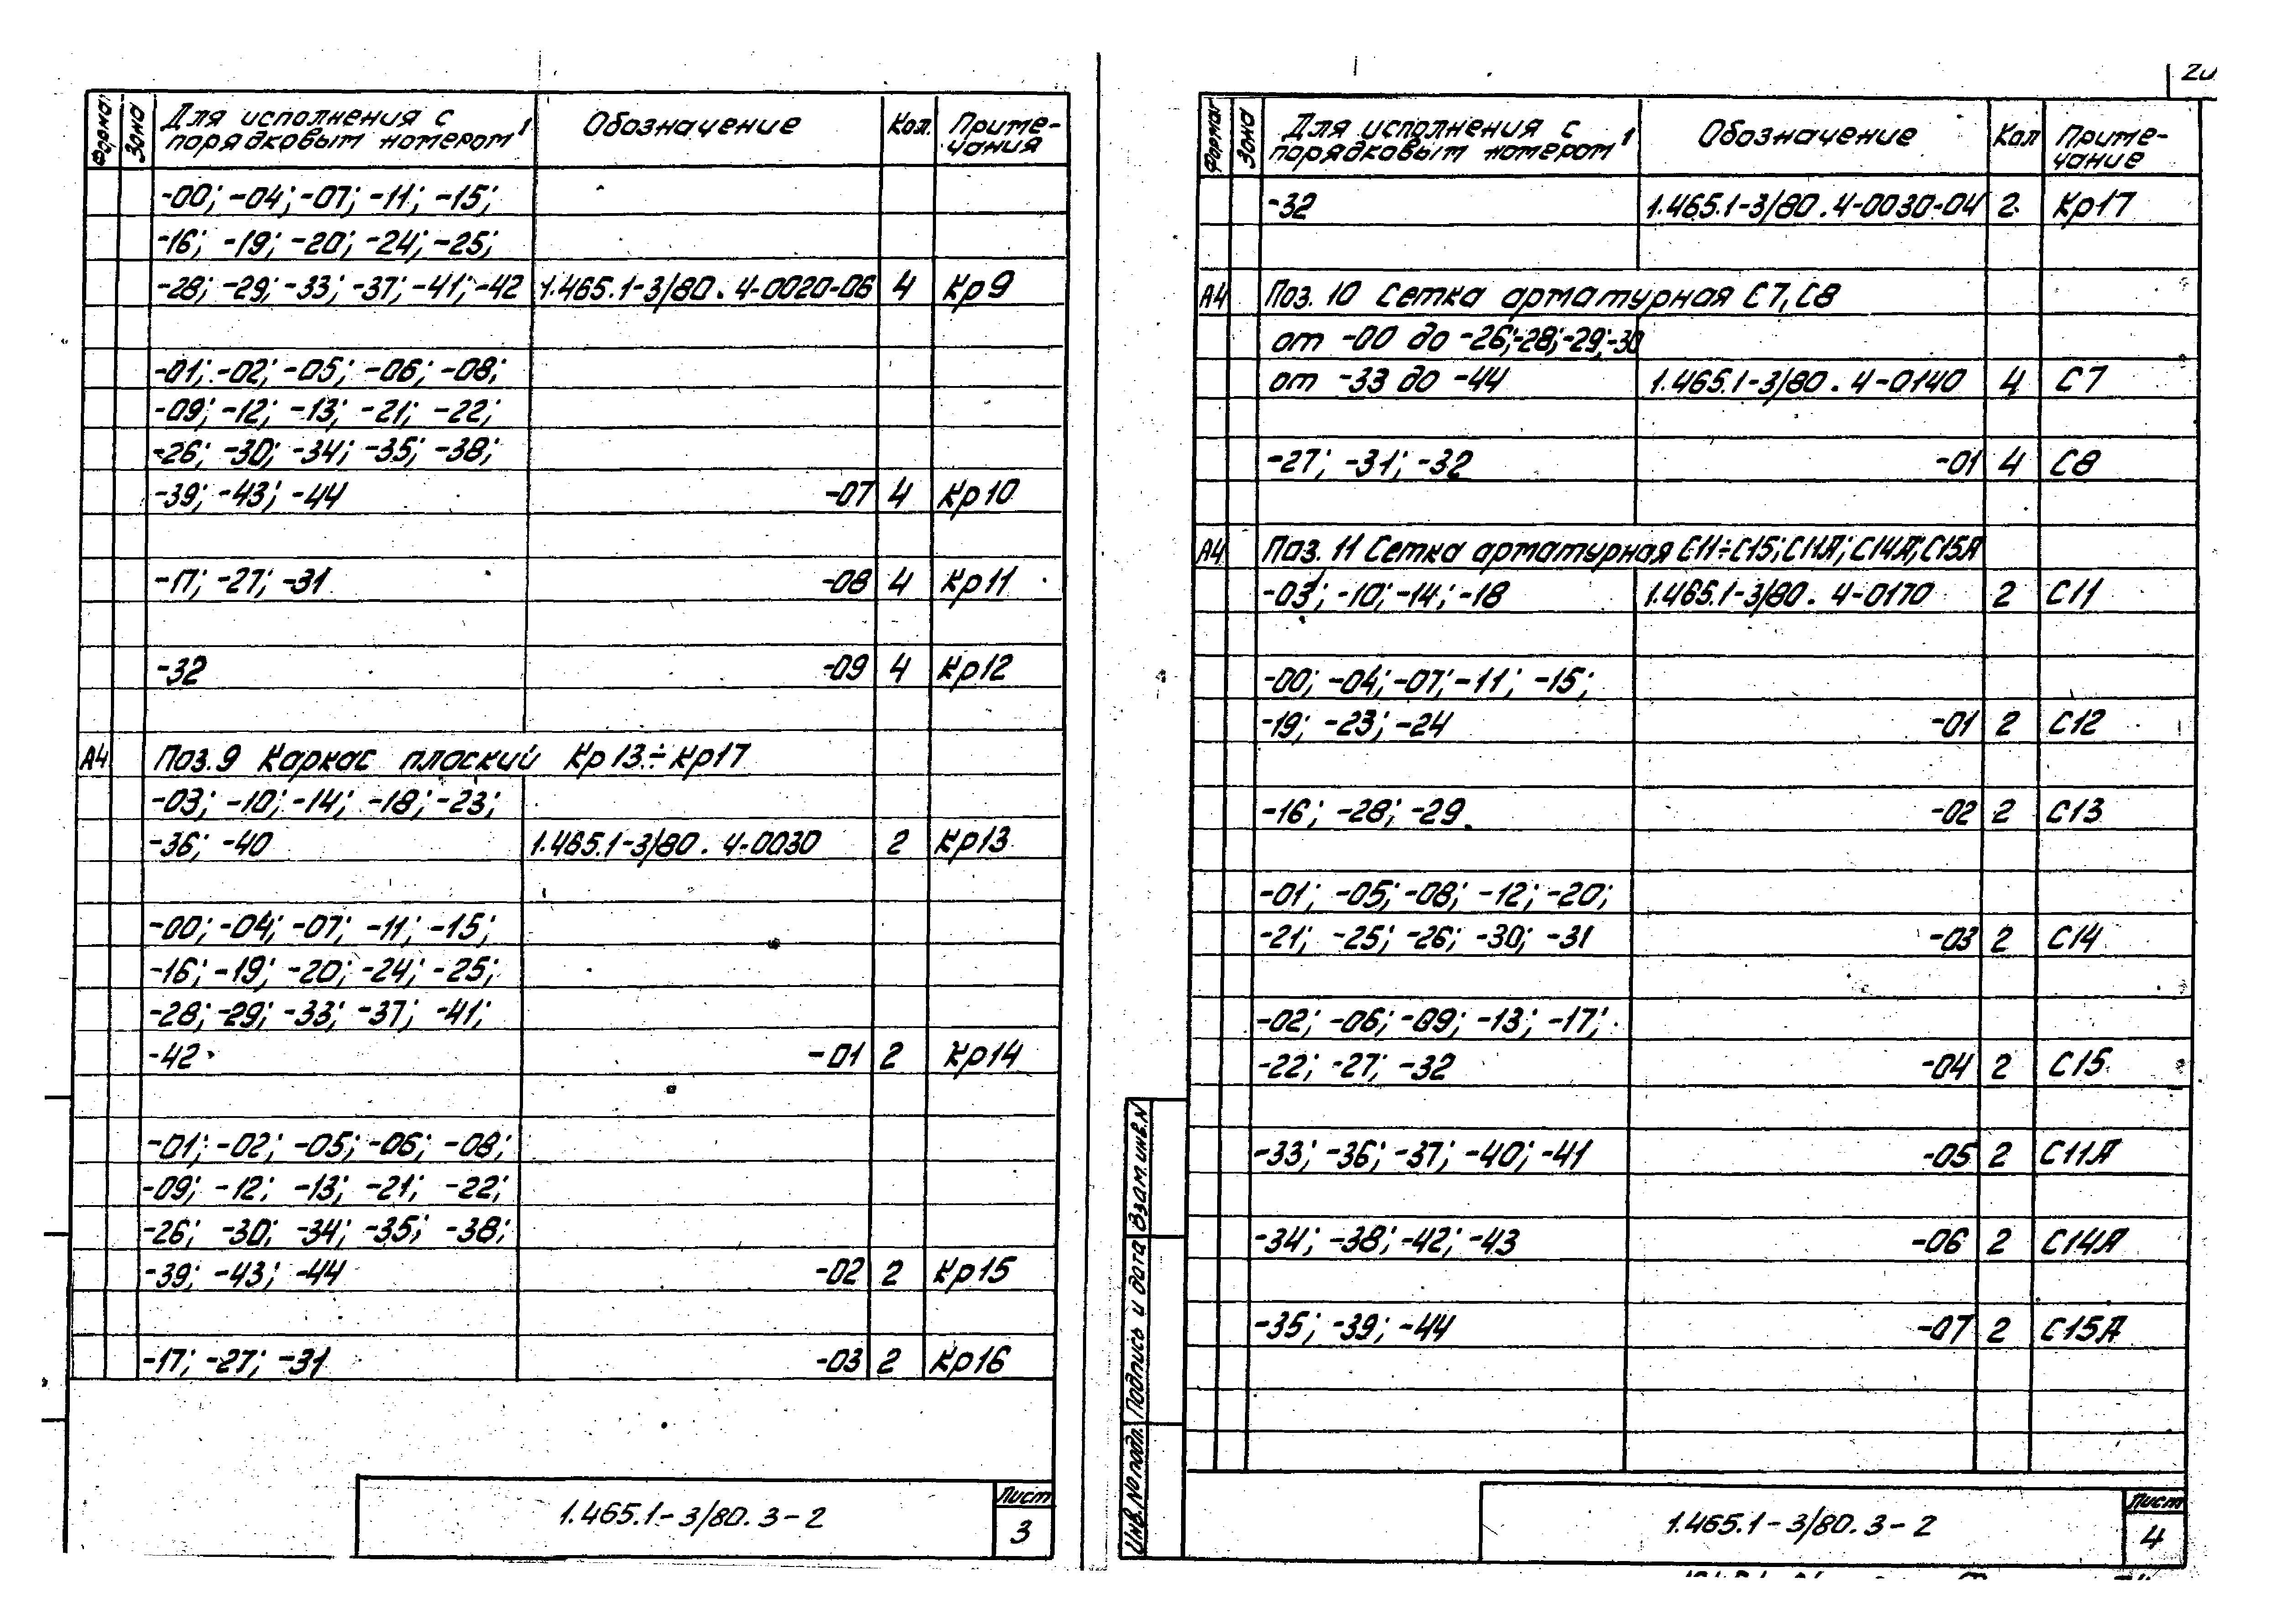 Формат Зона Для исполнения с порядковым номером¹ Обозначение Кол. Примечания
-00; -04; -07; -11; -15;
-16; -19; -20; -24; -25;
-28; -29; -33; -37; -41; -42 1.465.1-3/80. 4-0020-06 4 Кр9
-01; -02; -05; -06; -08;
-09; -12; -13; -21; -22;
-26; -30; -34; -35; -38;
-39; -43; -44 -07 4 Кр10
-17; -27; -31 -08 4 Кр11
-32 -09 4 Кр12
А4 Поз. 9 Каркас плоский Кр13÷Кр17
-03; -10; -14; -18; -23;
-36; -40 1.465.1-3/80. 4-0030 2 Кр13
-00; -04; -07; -11; -15;
-16; -19; -20; -24; -25;
-28; -29; -33; -37; -41;
-42 -01 2 Кр14
-01; -02; -05; -06; -08;
-09; -12; -13; -21; -22;
-26; -30; -34; -35; -38;
-39; -43; -44 -02 2 Кр15
-17; -27; -31 -03 2 Кр16
1.465.1-3/80. 3-2
Лист
3
Формат Зона Для исполнения с порядковым номером¹ Обозначение Кол Примечание
-32 1.465.1-3/80. 4-0030-04 2 Кр17
А4 Поз. 10 Сетка арматурная С7, С8
от -00 до -26; -28; -29; -30
от -33 до -44 1.465.1-3/80. 4-0140 4 С7
-27; -31; -32 -01 4 С8
А4 Поз. 11 Сетка арматурная С11÷С15; С11А; С14А; С15А
-03; -10; -14; -18 1.465.1-3/80. 4-0170 2 С11
-00; -04; -07; -11; -15;
-19; -23; -24 -01 2 С12
-16; -28; -29 -02 2 С13
-01; -05; -08; -12; -20;
-21; -25; -26; -30; -31 -03 2 С14
-02; -06; -09; -13; -17;
-22; -27; -32 -04 2 С15
-33; -36; -37; -40; -41 -05 2 С11А
-34; -38; -42; -43 -06 2 С14А
-35; -39; -44 -07 2 С15А
Взам. инв. N
Подпись и дата
Инв. N подл.
1.465.1-3/80. 3-2
Лист
4